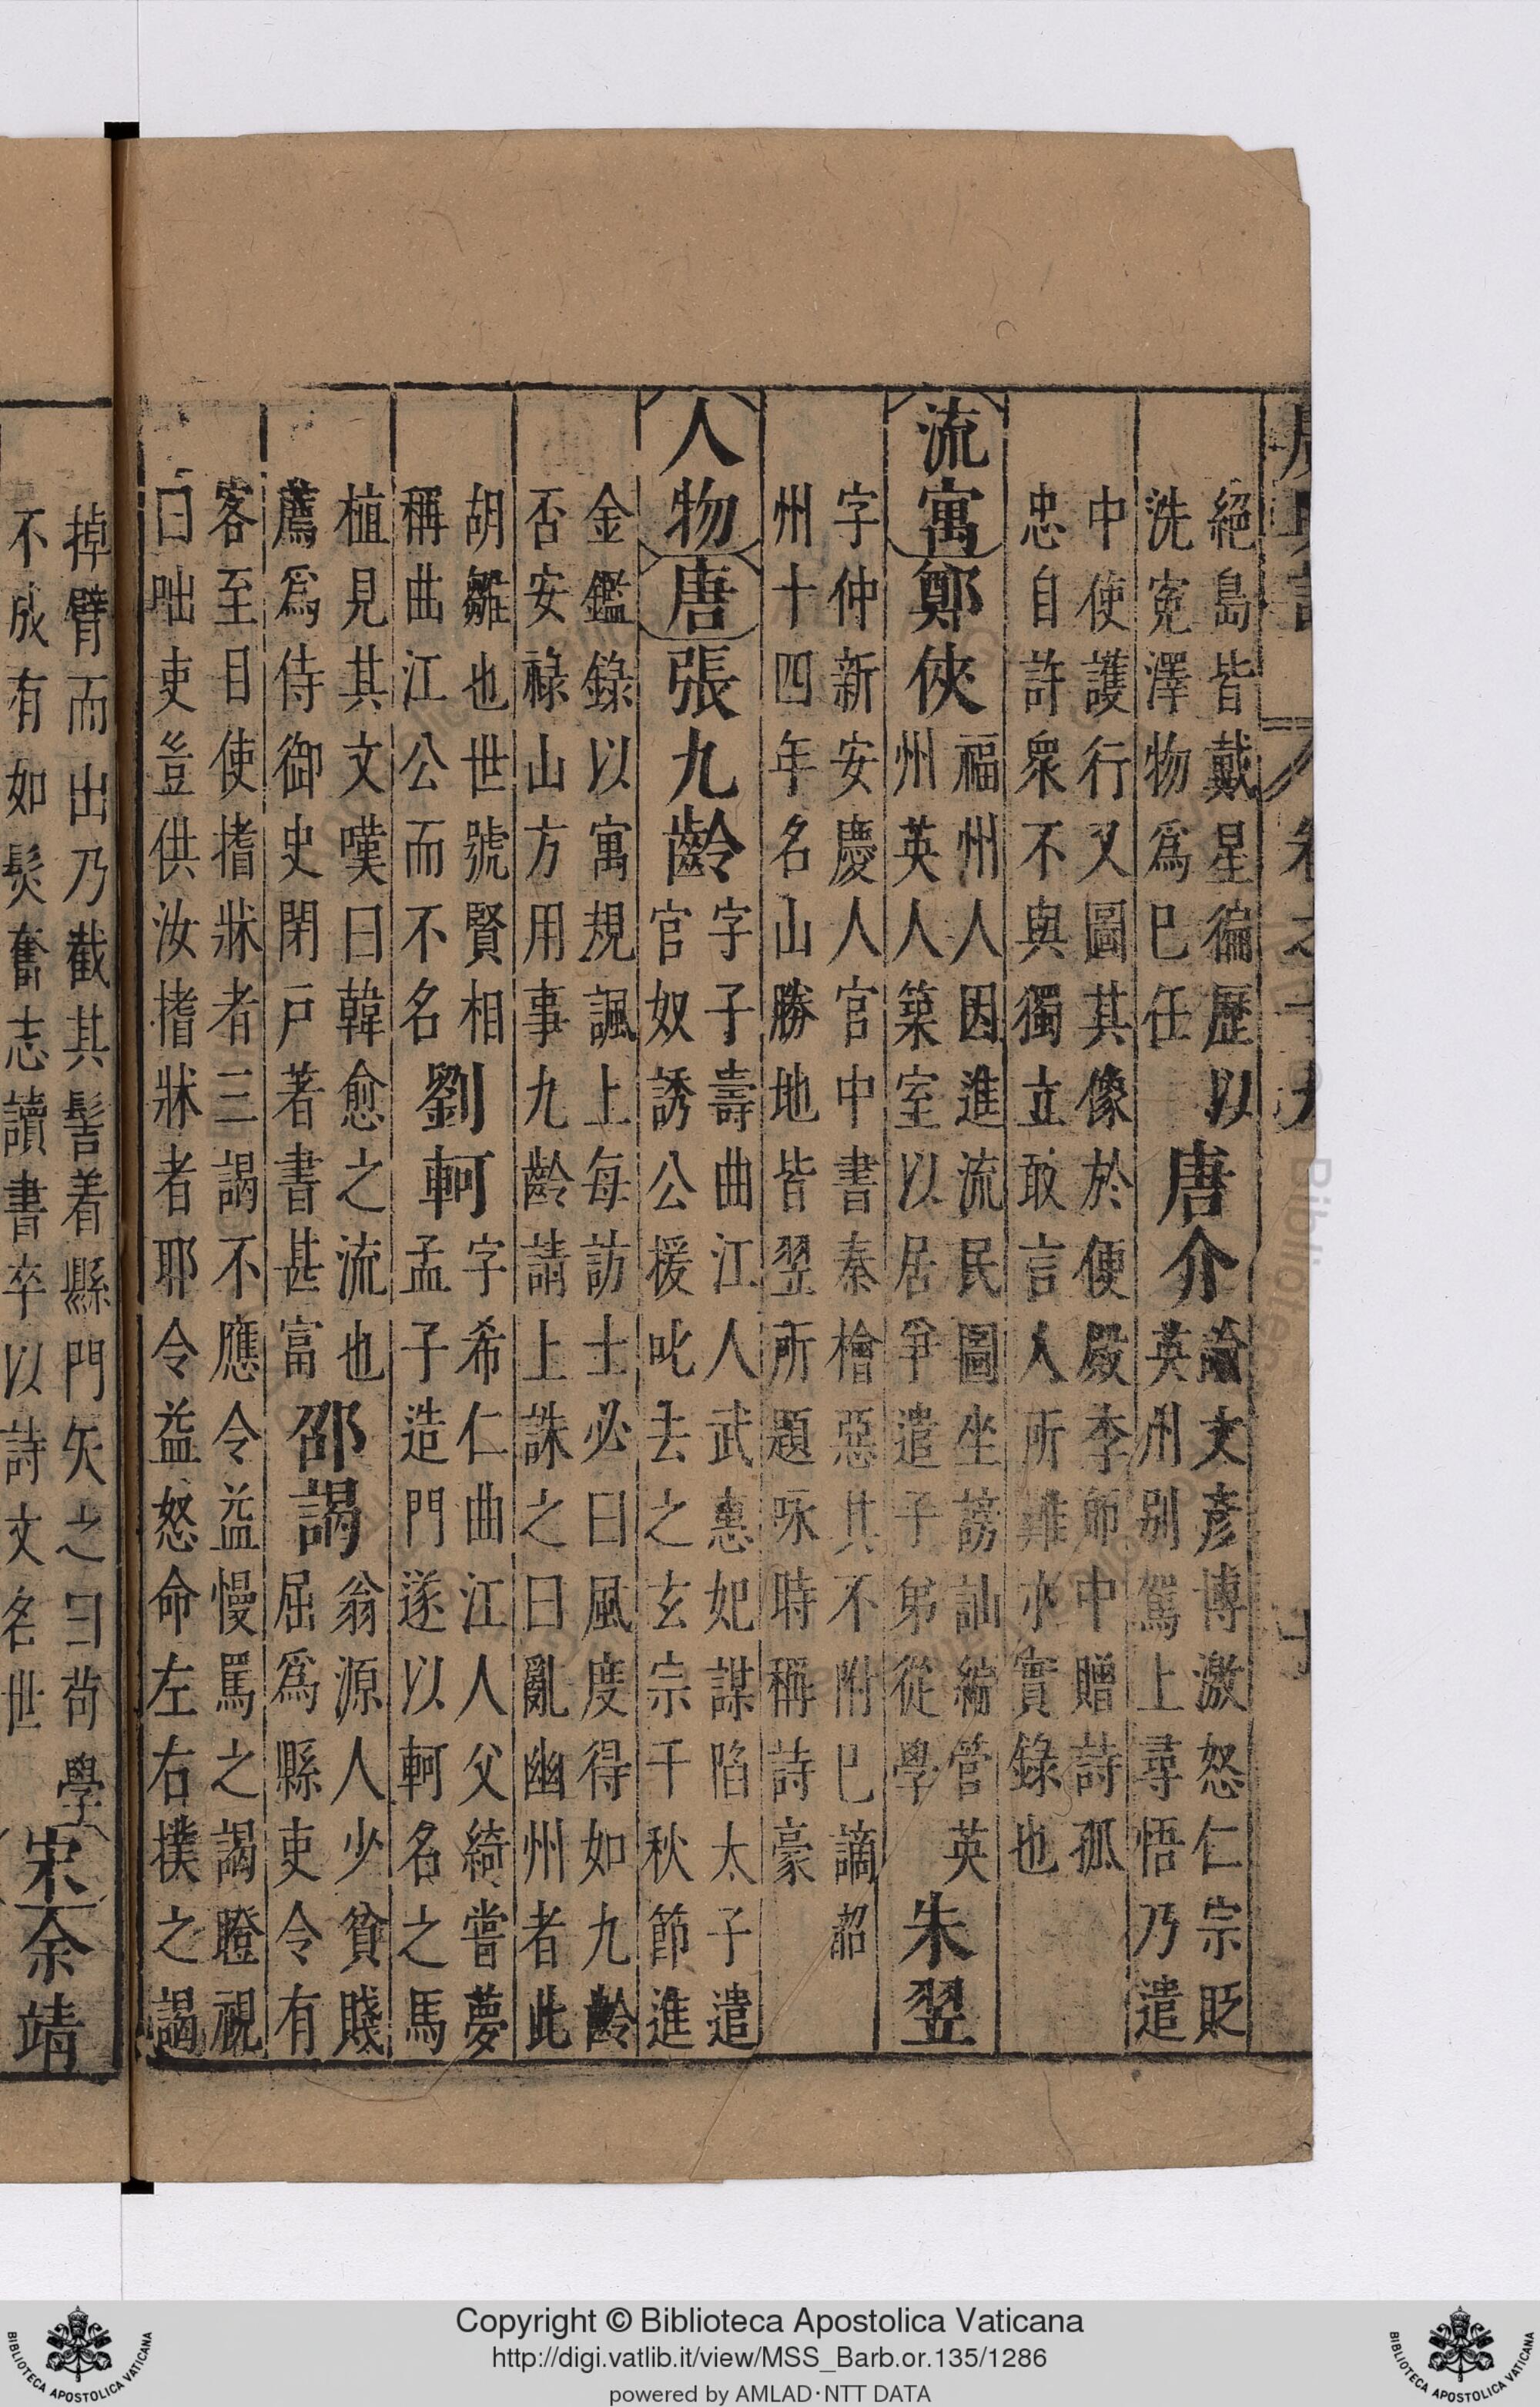 卷之十九
絕島皆戴星徧歷以
洗寃澤物爲巳任
唐介
論文彥博激怒仁宗貶
英州别駕上尋悟乃遣
中使護行又圖其像於便殿李師中贈詩孤
忠自許衆不與獨立敢言人所難亦實錄也
流寓
鄭俠
福州人因進流民圖坐謗訕編管英
州英人人築室以居爭遣子弟從學
朱翌
字仲新安慶人官中書秦檜惡其不附巳謫韶
州十四年名山勝地皆翌所題咏時稱詩豪
人物
唐
張九齡
字子壽曲江人武惠妃謀陷太子遣
官奴誘公援叱去之玄宗千秋節進
金鑑錄以寓規諷上每訪士必曰風度得如九齡
否安祿山方用事九齡請上誅之曰亂幽州者此
胡雛也世號賢相
稱曲江公而不名
劉軻
字希仁曲江人父綺嘗夢
孟子造門遂以軻名之馬
植見其文嘆曰韓愈之流也
薦爲侍御史閉戸著書甚富
邵謁
翁源人少貧賤
屈爲縣吏令有
客至目使揩牀者三謁不應令益慢罵之謁瞪視
曰咄吏豈供汝揩牀者耶令益怒命左右撲之謁
掉臂而出乃截其髻着縣門矢之曰苟學
不成有如髮奮志讀書卒以詩文名世
宋
余靖
Copyright © Biblioteca Apostolica Vaticana
http://digi.vatlib.it/view/MSS_Barb.or.135/1286
powered by AMLAD·NTT DATA
BIBLIOTECA APOSTOLICA VATICANA
BIBLIOTECA APOSTOLICA VATICANA